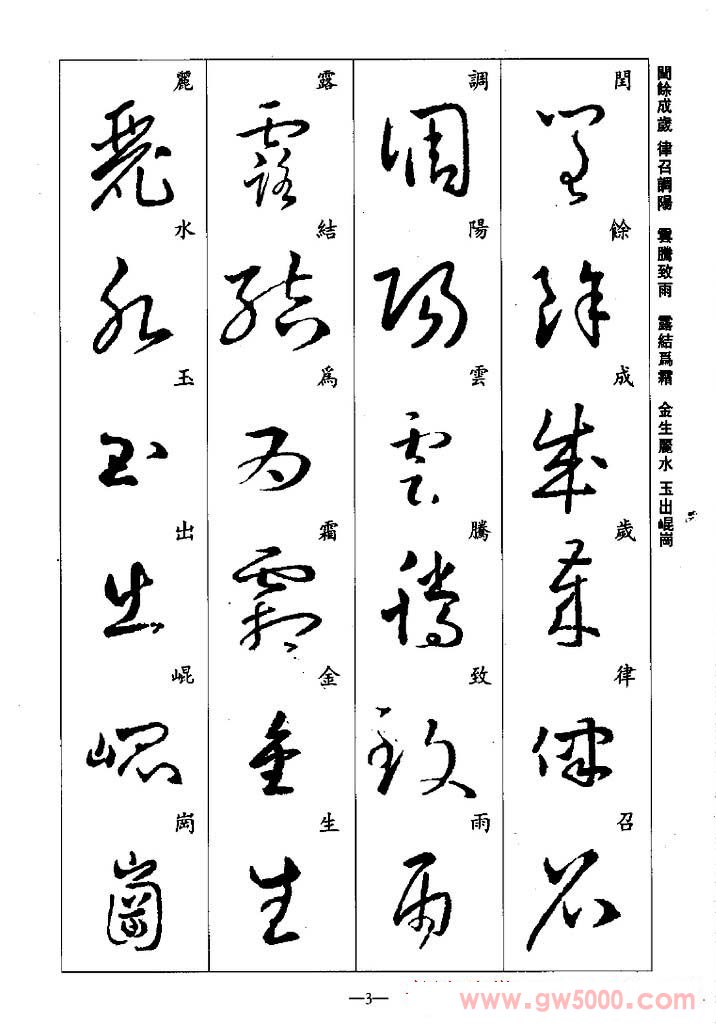 閏餘成歲 律召調陽 雲騰致雨 露結爲霜 金生麗水 玉出崐崗
閏餘成歲律召
調陽雲騰致雨
露結爲霜金生
麗水玉出崐崗
—3—
www.gw5000.com